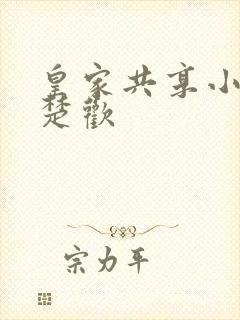 皇家共享小
楚歡
宗力平